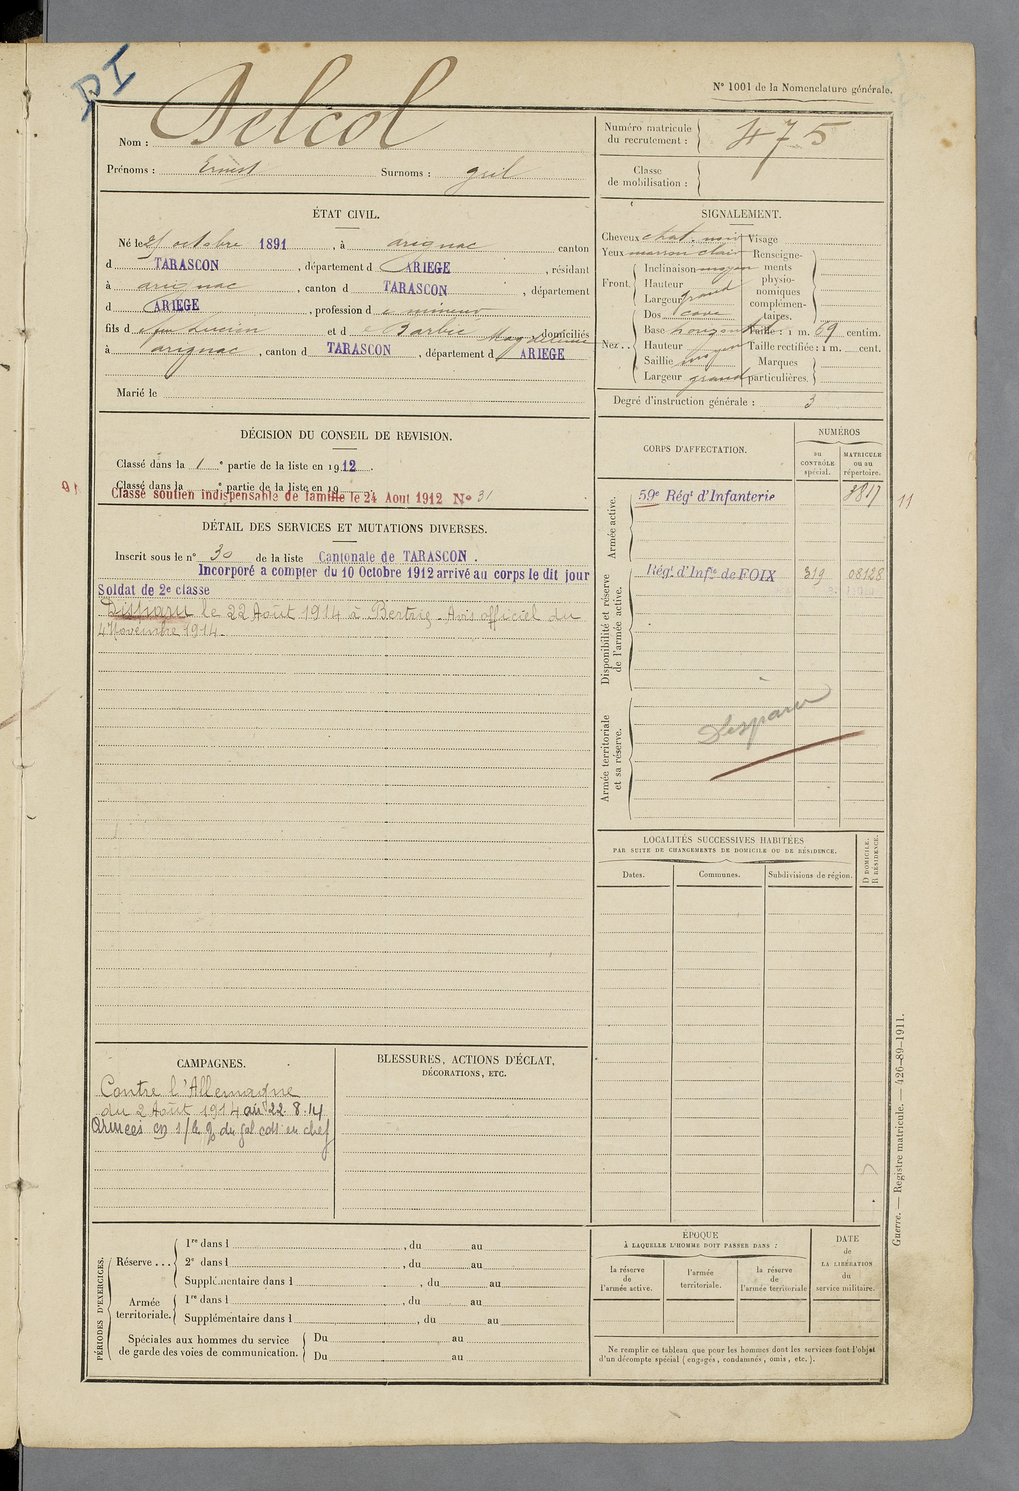 DI
N° 1001 de la Nomenclature générale.
Nom : Delcol
Prénoms : Ernest Surnoms : gril
Numéro matricule du recrutement : 475
Classe de mobilisation :
ÉTAT CIVIL.
Né le 21 octobre 1891, à arignac canton
d TARASCON, département d ARIEGE, résidant
à arignac, canton d TARASCON, département
d ARIEGE, profession de mineur
fils de feu Lucien et de Barbie Magdeleine domiciliés
à arignac, canton d TARASCON, département d ARIEGE
Marié le
SIGNALEMENT.
Cheveux chat. noir Visage
Yeux marron clair Renseigne-
Front. Inclinaison moyen ments
Hauteur physio-
Largeur grand nomiques
complémen-
Dos cave taires.
Nez.. Base horizontal Taille : 1 m. 69 centim.
Hauteur moyen Taille rectifiée : 1 m. cent.
Saillie moyen Marques
Largeur grand particulières.
Degré d'instruction générale : 3
DÉCISION DU CONSEIL DE REVISION.
Classé dans la 1e partie de la liste en 1912.
Classé dans la e partie de la liste en 19
Classé soutien indispensable de famille le 24 Aout 1912 N° 31
DÉTAIL DES SERVICES ET MUTATIONS DIVERSES.
Inscrit sous le n° 30 de la liste Cantonale de TARASCON.
Incorporé a compter du 10 Octobre 1912 arrivé au corps le dit jour
Soldat de 2e classe
Disparu le 22 Août 1914 à Bertrix. Avis officiel du
4 Novembre 1914.
CORPS D'AFFECTATION.
NUMÉROS
au CONTRÔLE spécial.
MATRICULE ou au répertoire.
Armée active.
59e Régt d'Infanterie 3817
11
Disponibilité et réserve de l'armée active.
Régt d'Infie de FOIX 319 08128
Armée territoriale et sa réserve.
Disparu
LOCALITÉS SUCCESSIVES HABITÉES
PAR SUITE DE CHANGEMENTS DE DOMICILE OU DE RÉSIDENCE.
Dates. Communes. Subdivisions de région.
D DOMICILE.
R RÉSIDENCE.
CAMPAGNES.
Contre l'Allemagne
du 2 Août 1914 au 22.8.14
Armées en s/ les o/ du gal cdt en chef
BLESSURES, ACTIONS D'ÉCLAT,
DÉCORATIONS, ETC.
PÉRIODES D'EXERCICES.
Réserve ... 1re dans l , du au
2e dans l , du au
Supplémentaire dans l , du au
Armée territoriale. 1re dans l , du au
Supplémentaire dans l , du au
Spéciales aux hommes du service Du au
de garde des voies de communication. Du au
ÉPOQUE
À LAQUELLE L'HOMME DOIT PASSER DANS :
la réserve de l'armée active.
l'armée territoriale.
la réserve de l'armée territoriale
DATE de LA LIBÉRATION du service militaire.
Ne remplir ce tableau que pour les hommes dont les services font l'objet
d'un décompte spécial (engagés, condamnés, omis, etc.).
Guerre. — Registre matricule. — 426-89-1911.